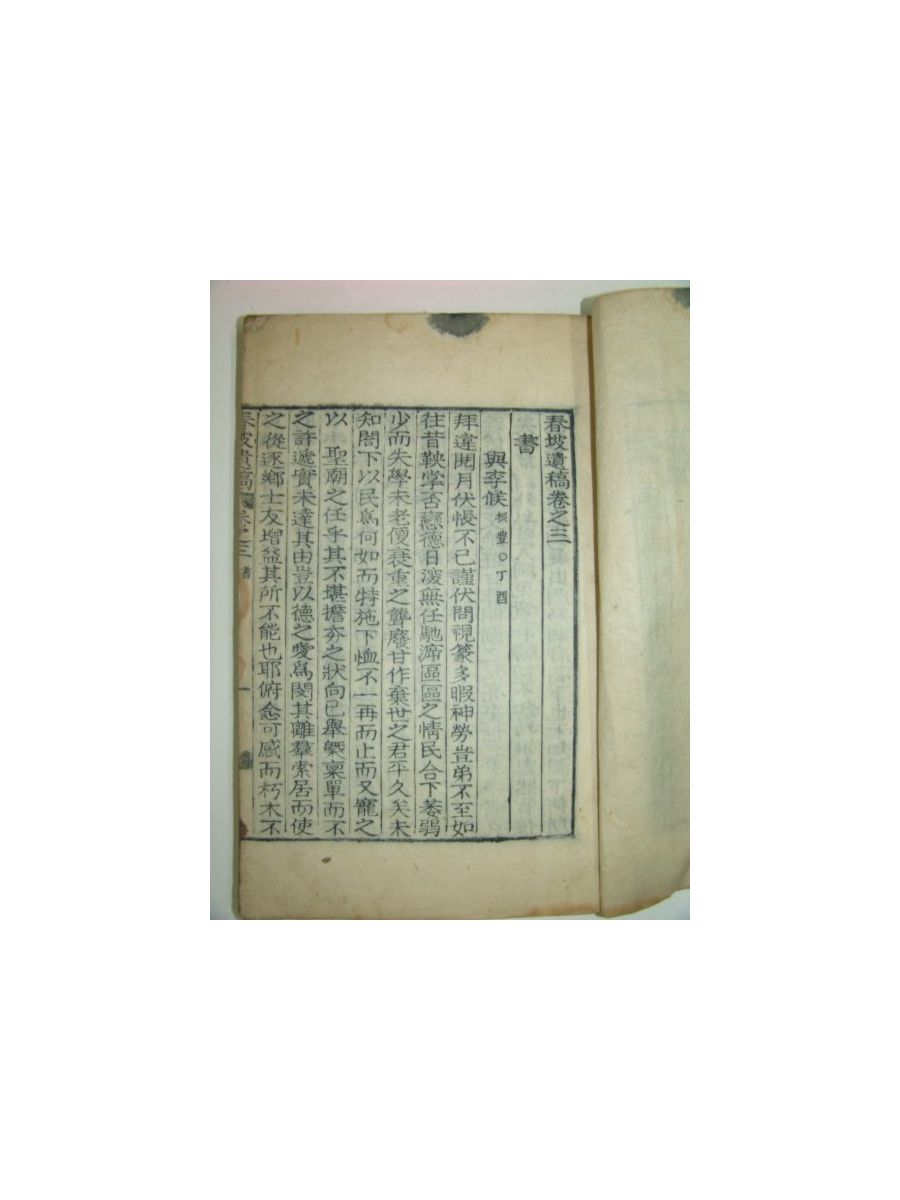 春坡遺稿卷之三
書
與李候根豊○丁酉
拜違閱月伏悵不已謹伏問視篆多暇神勞豈弟不至如
往昔鞅掌否戀德日深無任馳渧區區之情民合下萎弱
少而失學未老便衰重之聾廢甘作棄世之君平久矣未
知閤下以民爲何如而特施下恤不一再而止而又寵之
以 聖廟之任乎其不堪擔夯之狀向已舉槩稟單而不
之許遞實未達其由豈以德之愛爲閔其離羣索居而使
之從逐鄉士友增益其所不能也耶俯念可感而朽木不
春坡遺稿 卷之三 書 一